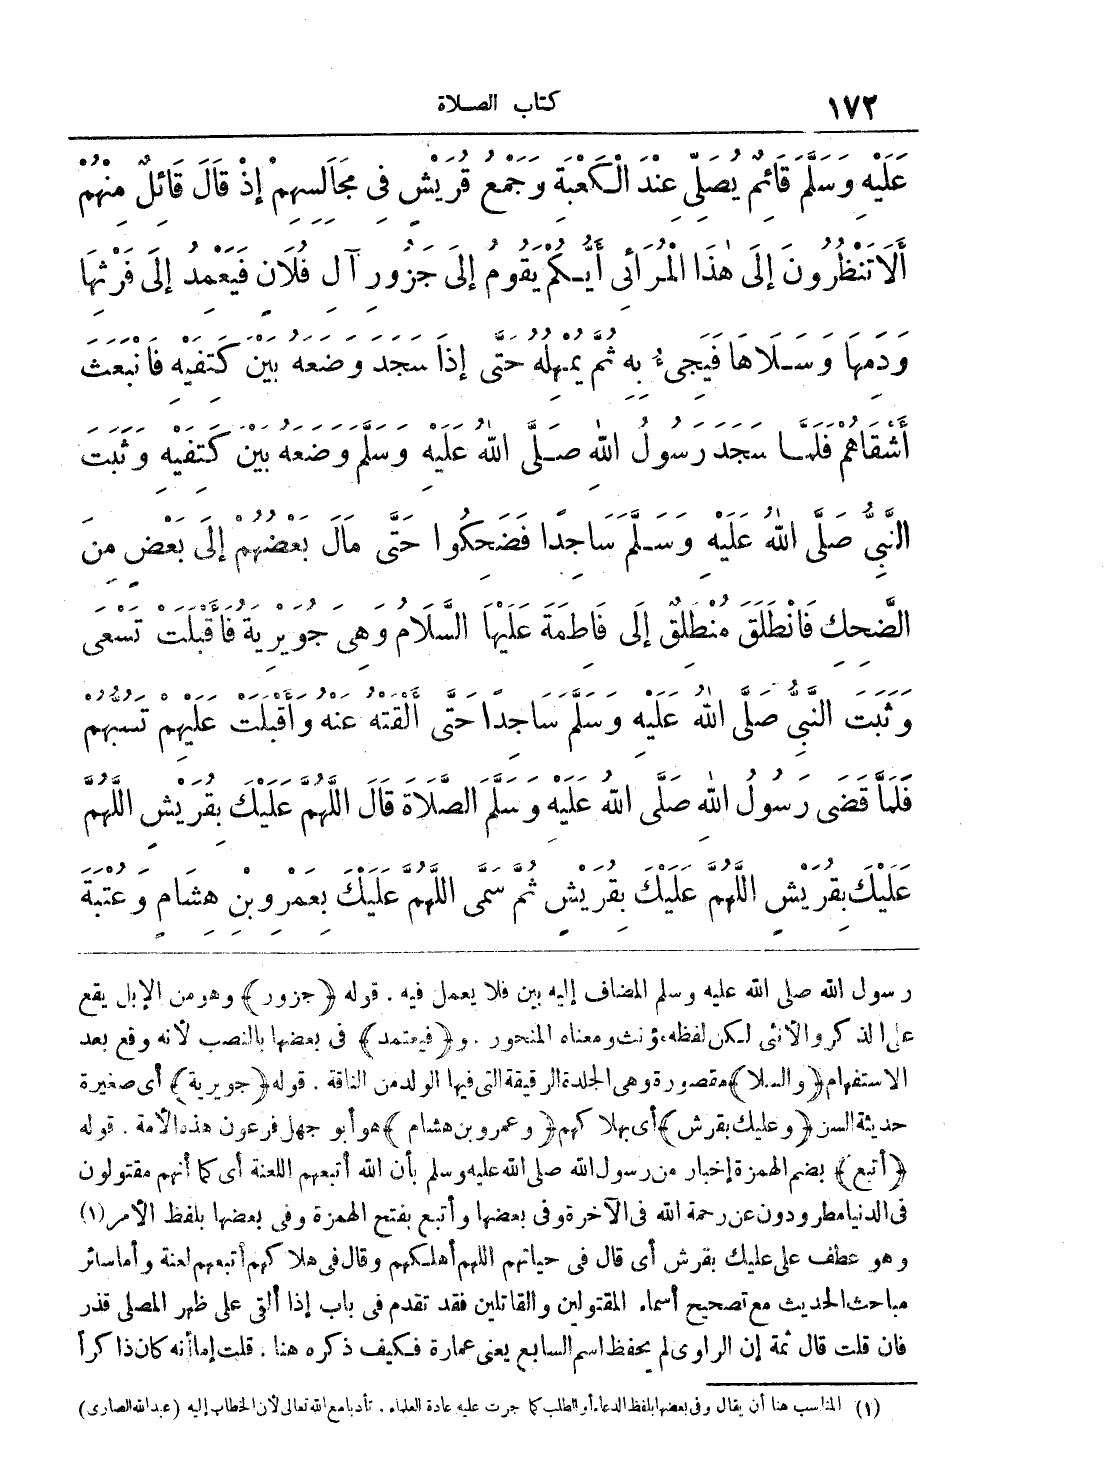 ١٧٢
كتاب الصلاة
عَلَيْهِ وَسَلَّمَ قَائِمٌ يُصَلِّي عِنْدَ الْكَعْبَةِ وَجَمْعُ قُرَيْشٍ فِي مَجَالِسِهِمْ إِذْ قَالَ قَائِلٌ مِنْهُمْ
أَلَا تَنْظُرُونَ إِلَى هٰذَا الْمُرَائِي أَيُّكُمْ يَقُومُ إِلَى جَزُورِ آلِ فُلَانٍ فَيَعْمِدُ إِلَى فَرْثِهَا
وَدَمِهَا وَسَلَاهَا فَيَجِيءُ بِهِ ثُمَّ يُمْهِلُهُ حَتَّى إِذَا سَجَدَ وَضَعَهُ بَيْنَ كَتِفَيْهِ فَانْبَعَثَ
أَشْقَاهُمْ فَلَمَّا سَجَدَ رَسُولُ اللهِ صَلَّى اللهُ عَلَيْهِ وَسَلَّمَ وَضَعَهُ بَيْنَ كَتِفَيْهِ وَثَبَتَ
النَّبِيُّ صَلَّى اللهُ عَلَيْهِ وَسَلَّمَ سَاجِدًا فَضَحِكُوا حَتَّى مَالَ بَعْضُهُمْ إِلَى بَعْضٍ مِنَ
الضَّحِكِ فَانْطَلَقَ مُنْطَلِقٌ إِلَى فَاطِمَةَ عَلَيْهَا السَّلَامُ وَهِيَ جُوَيْرِيَةٌ فَأَقْبَلَتْ تَسْعَى
وَثَبَتَ النَّبِيُّ صَلَّى اللهُ عَلَيْهِ وَسَلَّمَ سَاجِدًا حَتَّى أَلْقَتْهُ عَنْهُ وَأَقْبَلَتْ عَلَيْهِمْ تَسُبُّهُمْ
فَلَمَّا قَضَى رَسُولُ اللهِ صَلَّى اللهُ عَلَيْهِ وَسَلَّمَ الصَّلَاةَ قَالَ اللَّهُمَّ عَلَيْكَ بِقُرَيْشٍ اللَّهُمَّ
عَلَيْكَ بِقُرَيْشٍ اللَّهُمَّ عَلَيْكَ بِقُرَيْشٍ ثُمَّ سَمَّى اللَّهُمَّ عَلَيْكَ بِعَمْرِو بْنِ هِشَامٍ وَعُتْبَةَ
رسول الله صلى الله عليه وسلم المضاف إليه بين فلا يعمل فيه . قوله ﴿جزور﴾ وهو من الإبل يقع
على الذكر والأنثى لكن لفظه مؤنث ومعناه المنحور . و﴿فيعتمد﴾ في بعضها بالنصب لأنه وقع بعد
الاستفهام ﴿والسلا﴾ مقصورة وهي الجلدة الرقيقة التي فيها الولد من الناقة . قوله ﴿جويرية﴾ أي صغيرة
حديثة السن ﴿وعليك بقرش﴾ أي بهلاكهم ﴿وعمرو بن هشام﴾ هو أبو جهل فرعون هذه الأمة . قوله
﴿أتبع﴾ بضم الهمزة إخبار من رسول الله صلى الله عليه وسلم بأن الله أتبعهم اللعنة أي كما أنهم مقتولون
في الدنيا مطرودون عن رحمة الله في الآخرة وفي بعضها وأتبع بفتح الهمزة وفي بعضها بلفظ الأمر (١)
وهو عطف على عليك بقرش أي قال في حياتهم اللهم أهلكهم وقال في هلاكهم أتبعهم لعنة وأما سائر
مباحث الحديث مع تصحيح أسماء المقتولين والقاتلين فقد تقدم في باب إذا ألقى على ظهر المصلى قذر
فان قلت قال ثمة إن الراوي لم يحفظ اسم السابع يعني عمارة فكيف ذكره هنا . قلت إما أنه كان ذا كرأ
(١) المناسب هنا أن يقال وفي بعضها بلفظ الدعاء أو الطلب كما جرت عليه عادة العلماء . تأدبا مع الله تعالى لأن الخطاب إليه (عبدالله الصاوى)